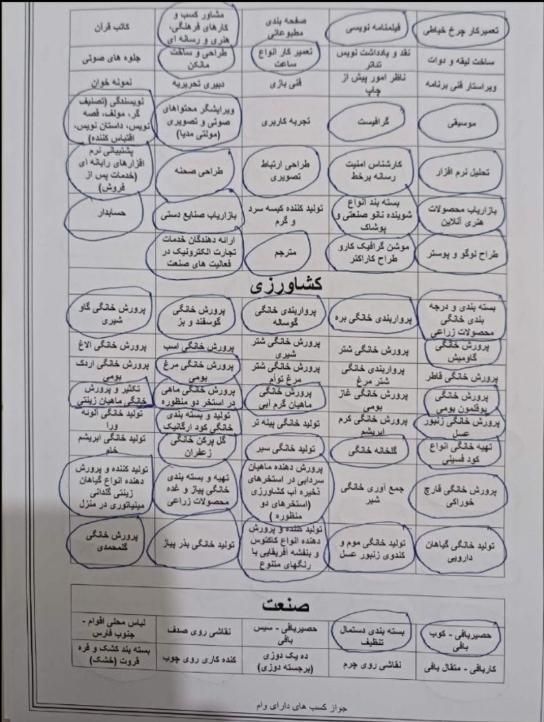 تعمیرکار چرخ خیاطی
فیلمنامه نویسی
صفحه بندی مطبوعاتی
مشاور کسب و کارهای فرهنگی، هنری و رسانه ای
کاتب قرآن
ساخت لیقه و دوات
نقد و یادداشت نویس تئاتر
تعمیر کار انواع ساعت
طراحی و ساخت مانکن
جلوه های صوتی
ویراستار فنی برنامه
ناظر امور پیش از چاپ
فنی بازی
دبیری تحریریه
نمونه خوان
موسیقی
گرافیست
تجربه کاربری
ویرایشگر محتواهای صوتی و تصویری (مولتی مدیا)
نویسندگی (تصنیف گر، مولف، قصه نویس، داستان نویس، اقتباس کننده)
تحلیل نرم افزار
کارشناس امنیت رسانه برخط
طراحی ارتباط تصویری
طراحی صحنه
پشتیبانی نرم افزارهای رایانه ای (خدمات پس از فروش)
بازاریاب محصولات هنری آنلاین
بسته بندی انواع شوینده نانو صنعتی و پوشاک
تولید کننده کیسه سرد و گرم
بازاریاب صنایع دستی
حسابدار
طراح لوگو و پوستر
موشن گرافیک کارو طراح کاراکتر
مترجم
ارائه دهندگان خدمات تجارت الکترونیک در فعالیت های صنعت
کشاورزی
بسته بندی و درجه بندی خانگی محصولات زراعی
پرواربندی خانگی بره
پرواربندی خانگی گوساله
پرورش خانگی گوسفند و بز
پرورش خانگی گاو شیری
پرورش خانگی گاومیش
پرورش خانگی شتر
پرورش خانگی شتر شیری
پرورش خانگی اسب
پرورش خانگی الاغ
پرورش خانگی قاطر
پرواربندی خانگی شتر مرغ
پرورش خانگی شتر مرغ توام
پرورش خانگی مرغ بومی
پرورش خانگی اردک بومی
پرورش خانگی بوقلمون بومی
پرورش خانگی غاز بومی
پرورش خانگی ماهیان گرم آبی
پرورش خانگی ماهی در استخر دو منظوره
تکثیر و پرورش خانگی ماهیان زینتی
پرورش خانگی زنبور عسل
پرورش خانگی کرم ابریشم
تولید خانگی پینه تر
تولید و بسته بندی خانگی کود ارگانیک
تولید خانگی آلوئه ورا
تهیه خانگی انواع کود فسیلی
گلخانه خانگی
تولید خانگی سیر
گل پرکن خانگی زعفران
تولید خانگی ابریشم خام
پرورش خانگی قارچ خوراکی
جمع آوری خانگی شیر
پرورش دهنده ماهیان سردابی در استخرهای ذخیره آب کشاورزی (استخرهای دو منظوره)
تهیه و بسته بندی خانگی پیاز و غده محصولات زراعی
تولید کننده و پرورش دهنده انواع گیاهان زینتی گلدانی مینیاتوری در منزل
تولید خانگی گیاهان دارویی
تولید خانگی موم و کندوی زنبور عسل
تولید کننده و پرورش دهنده انواع کاکتوس و بنفشه آفریقایی با رنگهای متنوع
تولید خانگی بذر پیاز
پرورش خانگی گلمحمدی
صنعت
حصیربافی - کوب بافی
بسته بندی دستمال تنظیف
حصیربافی - سیس بافی
نقاشی روی صدف
لباس محلی اقوام - جنوب فارس
کاربافی - متقال بافی
نقاشی روی چرم
ده یک دوزی (برجسته دوزی)
کنده کاری روی چوب
بسته بند کشک و قره قروت (خشک)
جواز کسب های دارای وام